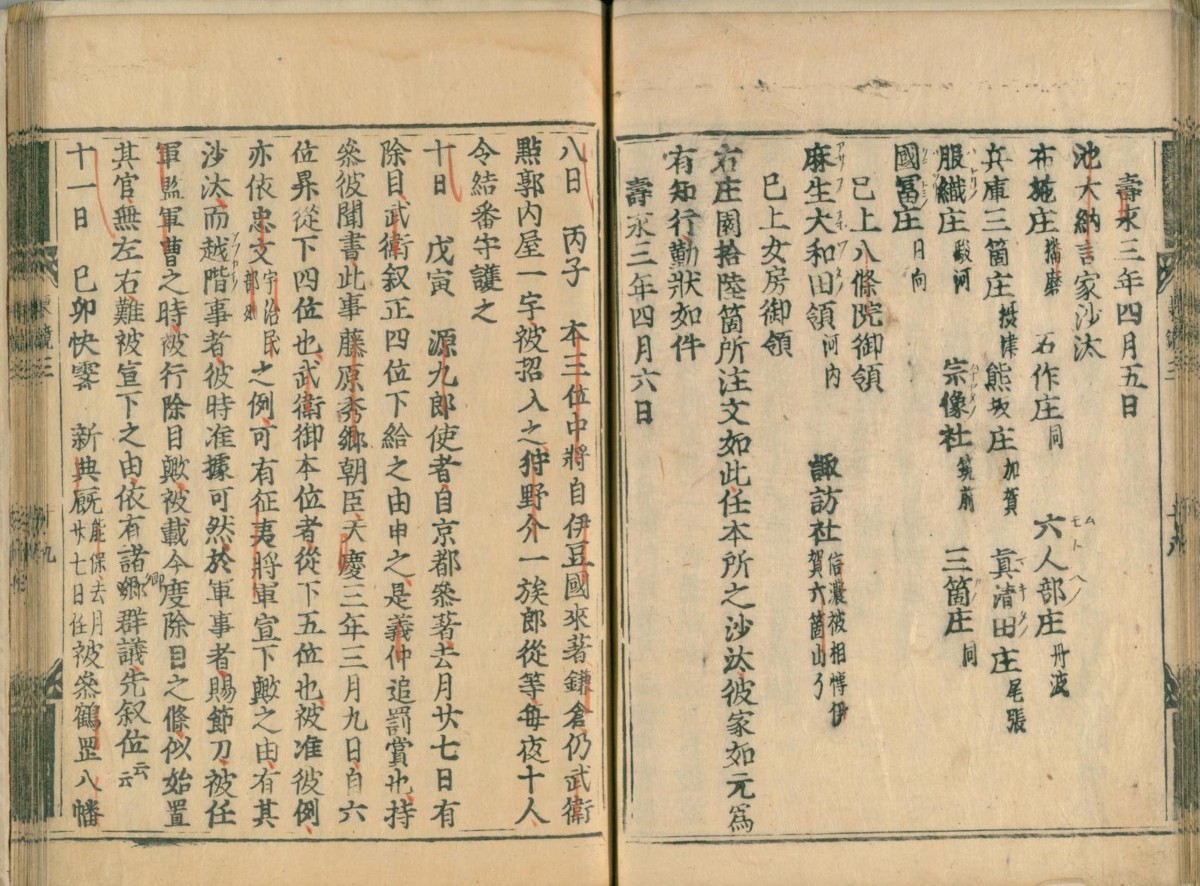 壽永三年四月五日
池大納言家沙汰
布施庄播磨 石作庄同 六人部庄丹波
兵庫三箇庄摂津 熊坂庄加賀 真清田庄尾張
服織庄駿河 宗像社筑前 三箇庄同
國冨庄日向
已上八條院御領
麻生大和田領河内 諏訪社信濃被相博伊賀六箇山了
已上女房御領
右庄園拾陸箇所注文如此任本所之沙汰彼家如元爲
有知行勤狀如件
壽永三年四月六日
八日 丙子 本三位中將自伊豆國來著鎌倉仍武衛
點郭内屋一宇被招入之狩野介一族郎從等每夜十人
令結番守護之
十日 戊寅 源九郎使者自京都參著去月廿七日有
除目武衛叙正四位下給之由申之是義仲追罸賞也持
參彼聞書此事藤原秀鄉朝臣天慶三年三月九日自六
位昇從下四位也武衛御本位者從下五位也被准彼例
亦依忠文宇治民部卿之例可有征夷將軍宣下歟之由有其
沙汰而越階事者彼時准據可然於軍事者賜節刀被任
軍監軍曹之時被行除目歟被載今度除目之條似始置
其官無左右難被宣下之由依有諸卿群議先叙位云云
十一日 已卯快霽 新典厩能保去月廿七日任被參鶴罡八幡